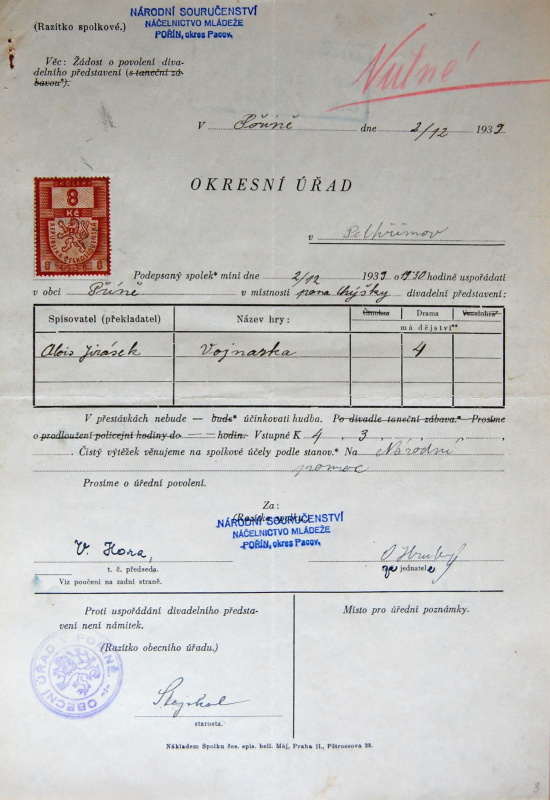 NÁRODNÍ SOURUČENSTVÍ
NÁČELNICTVO MLÁDEŽE
POŘÍN, okres Pacov.
(Razítko spolkové.)
Věc: Žádost o povolení diva-
delního představení (s taneční zá-
bavou*).
Nutné
V Pořině dne 2/12 1939
OKRESNÍ ÚŘAD
v Pelhřimov
KOLEK
8
Kč
REPUBLIKA ČESKOSLOVENSKÁ
8 8
Podepsaný spolek* míní dne 2/12 1939 o 19'30 hodině uspořádati
v obci Pořině v místnosti pana Chýšky divadelní představení:
Spisovatel (překladatel) Název hry: Činohra Drama Veselohra
má dějství**
Alois Jirásek Vojnarka 4
V přestávkách nebude — bude* účinkovati hudba. Po divadle taneční zábava.* Prosíme
o prodloužení policejní hodiny do — — hodin. Vstupné K 4, 3,
Čistý výtěžek věnujeme na spolkové účely podle stanov.* Na Národní
pomoc
Prosíme o úřední povolení.
Za:
(Razítko spolku)
NÁRODNÍ SOURUČENSTVÍ
NÁČELNICTVO MLÁDEŽE
POŘÍN, okres Pacov.
V. Hora, O Hrubý
t. č. předseda. za jednatele
Viz poučení na zadní straně.
Proti uspořádání divadelního představ-
vení není námitek.
Místo pro úřední poznámky.
(Razítko obecního úřadu.)
OBECNÍ ÚŘAD V POŘÍNĚ
Stejskal
starosta.
Nákladem Spolku čes. spis. bell. Máj, Praha II., Pštrossova 23.
3